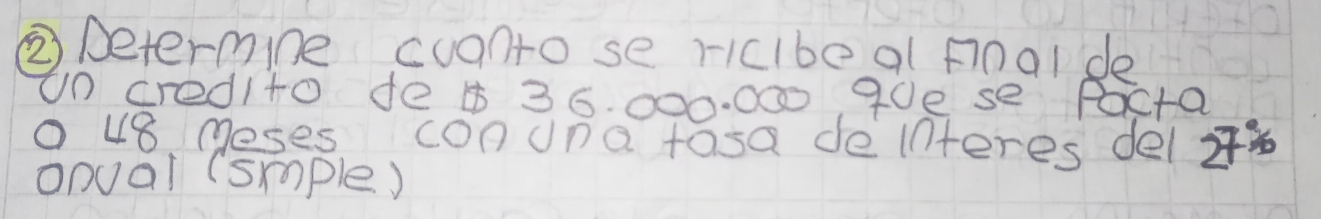 ② Determine cuanto se ricibe al final de
un credito de $ 36.000.000 que se Pacta
a 48 meses con una tasa de interes del 27%
anual (smple)